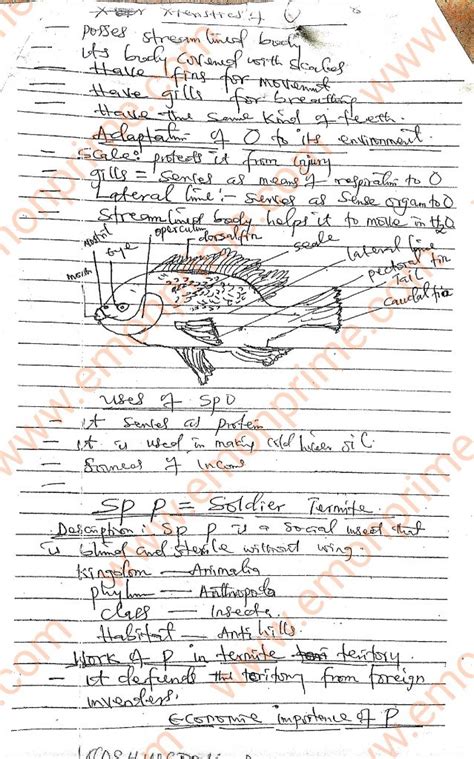 Xteristics of O
- Posses streamlined body
- Its body covered with scales
- Have fins for movement
- Have gills for breathing
- Have the same kind of teeth.
Adaptation of O to its environment
- Scale: protects it from injury
gills = serves as means of respiration to O
Lateral line:- serves as sense organ to O
Streamlined body helps it to move in H2O
operculum
nostril
eye
dorsal fin
scale
lateral line
pectoral fin
mouth
Tail
caudal fin
Uses of Sp O
- it serves as protein
- it is used in making cod liver oil
- Sources of Income
Sp P = Soldier Termite
Description: Sp P is a social insect that
is blind and sterile without wing.
Kingdom — Animalia
phylum — Anthropoda
class — Insecta
Habitat — Ant hills
Work of P in termite teritory
- it defends the toritory from foreign
invenders.
Economic importance of P
www.emonprime.com